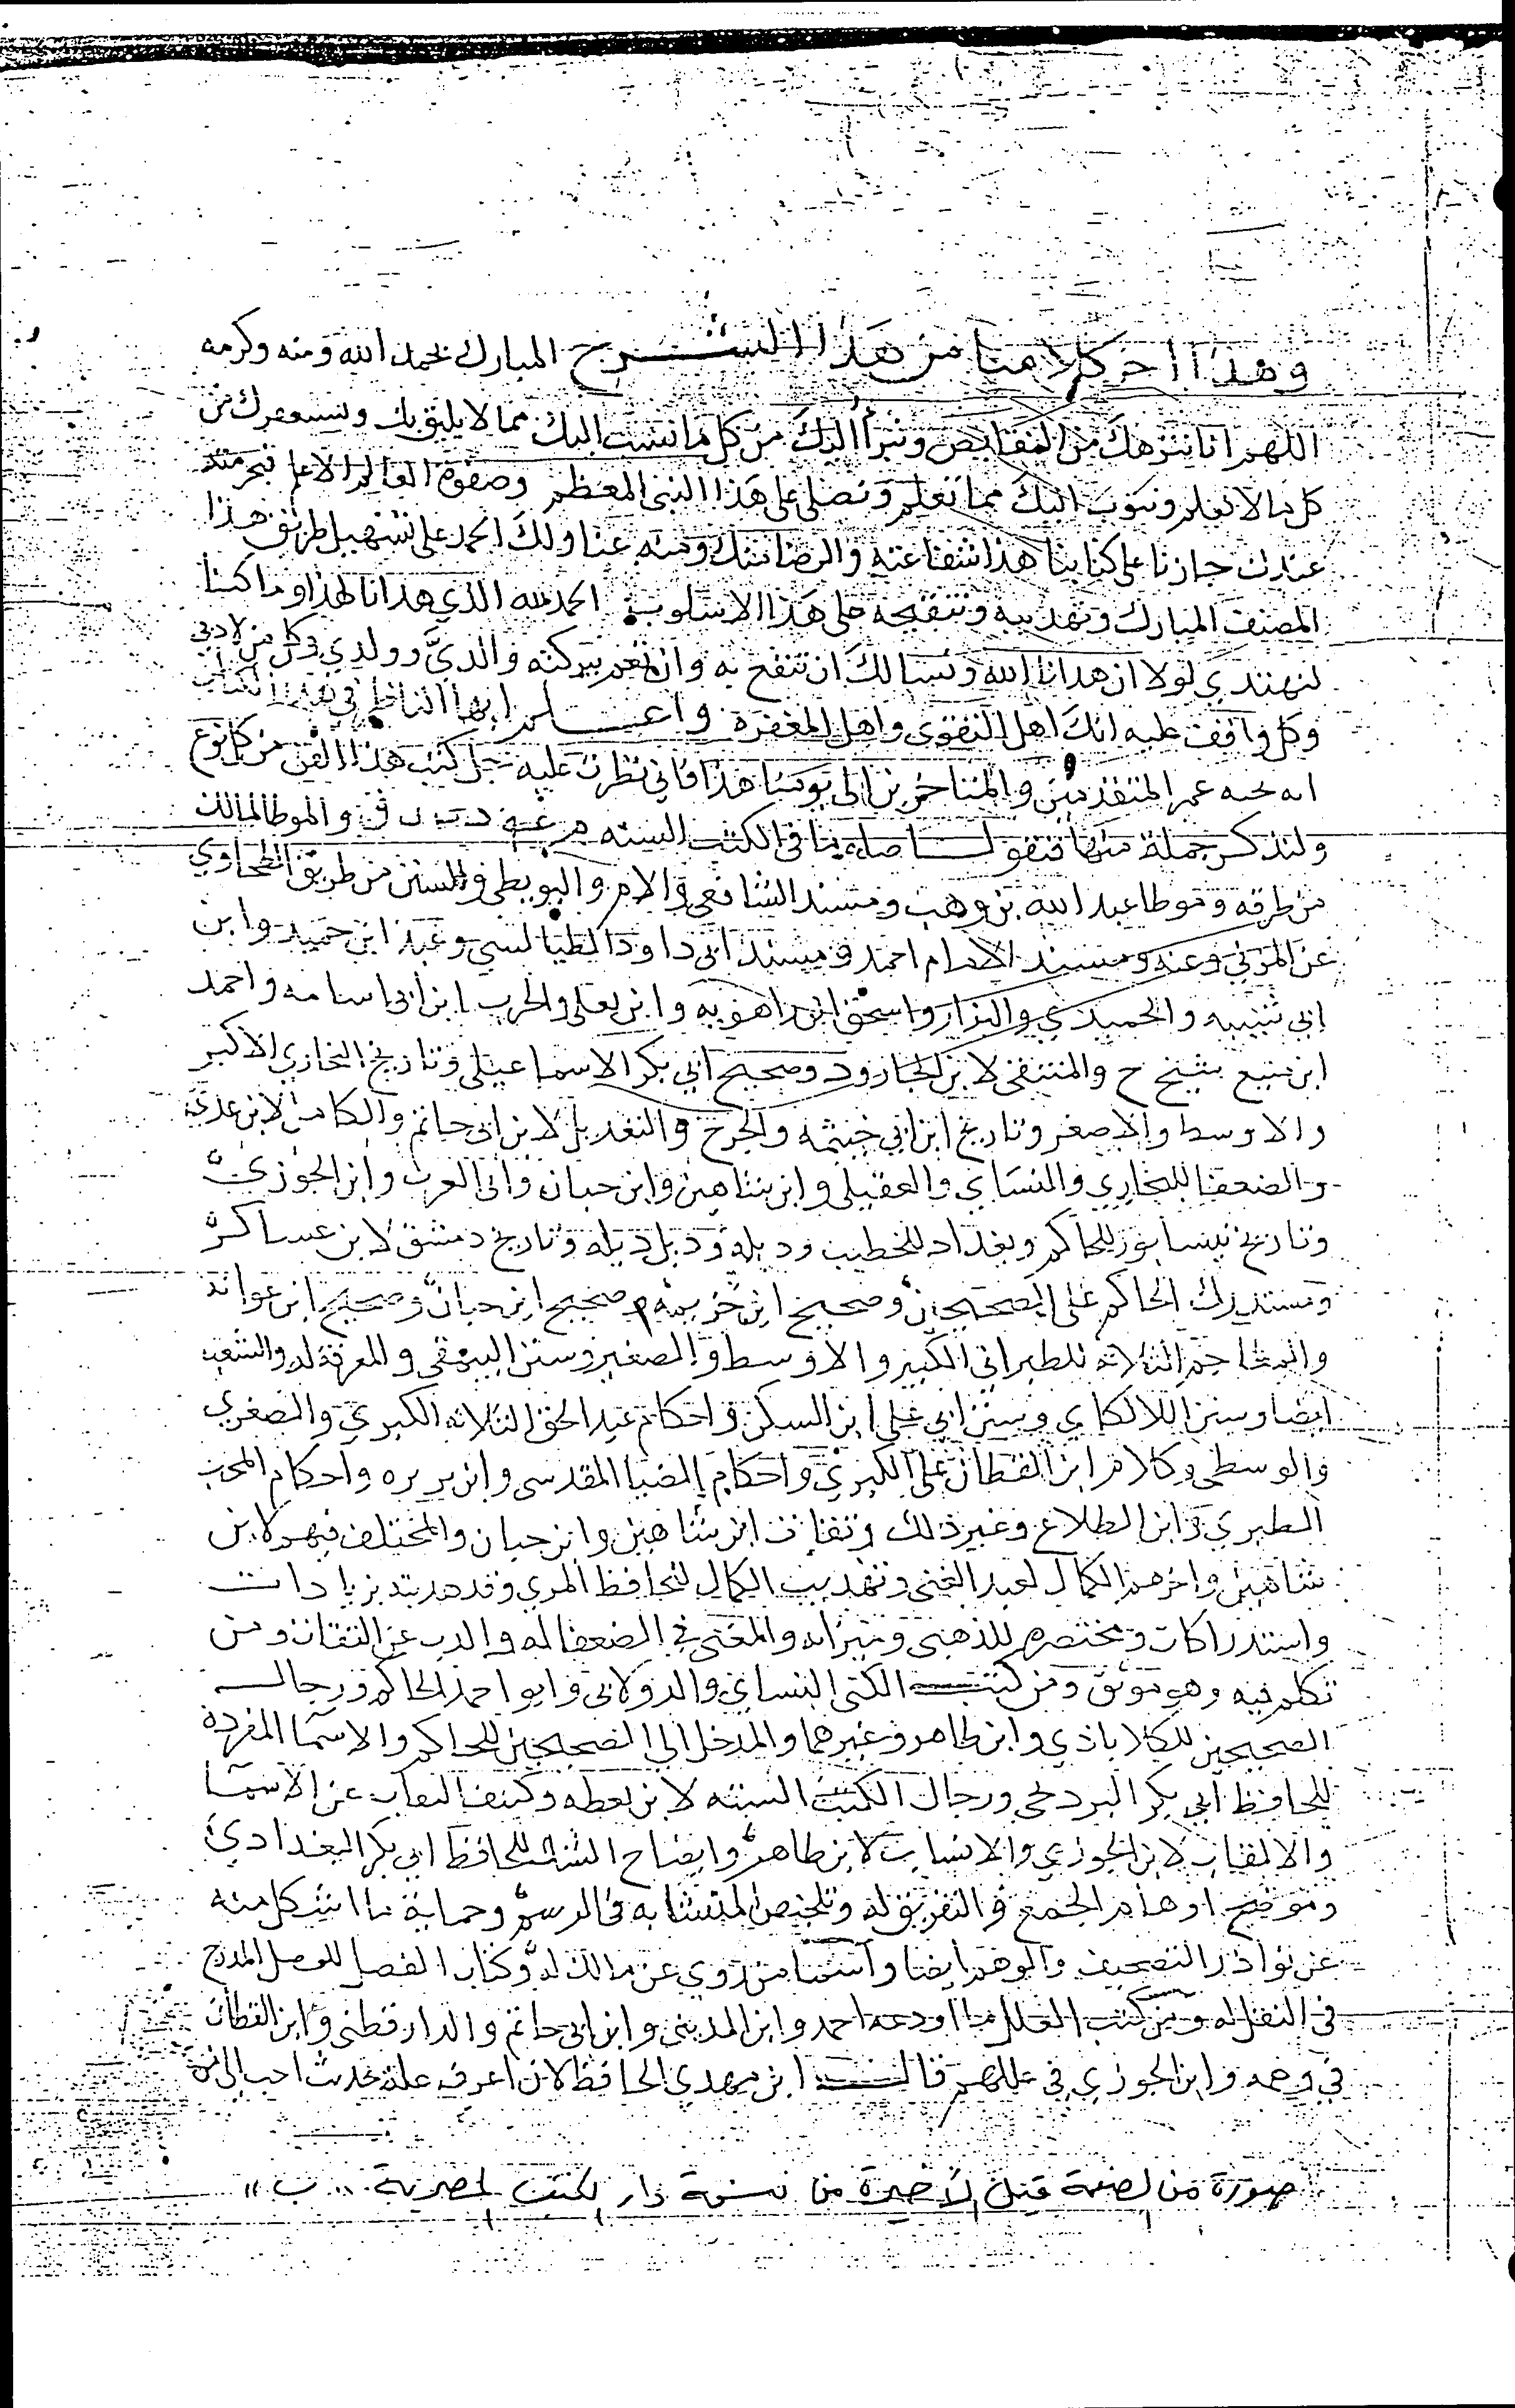 وهذا اخر كلامنا من هذا الشرح المبارك بحمد الله ومنه وكرمه
اللهم انا ننزهك من النقايص ونبرأ اليك من كل ما نسب اليك مما لا يليق بك ونستغفرك من
كل ما لا نعلم ونتوب اليك مما نعلم ونصلي على هذا النبي المعظم وصفوة العالم الاعلم فبحرمته
عندك جازنا على كتابنا هذا شفاعته والرضا منك ومنه عنا ولك الحمد على تسهيل طريق هذا
المصنف المبارك وتهذيبه وتنقيحه على هذا الاسلوب الحمد لله الذي هدانا لهذا وما كنا
لنهتدي لولا ان هدانا الله ونسالك ان تنفع به وان تعم ببركته والديَّ وولدي وكل من لاذ بي
وكل واقف عليه انك اهل التقوى واهل المغفرة واعلم ايها الناظر في هذا الكتاب
انه نخبه عمر المتقدمين والمتاخرين الى يومنا هذا فاني نظرت عليه جل كتب هذا الفن من كل نوع
ولنذكر جملة منها فنقول اصلنا في الكتب السته خ م د ت س ق والموطا لمالك
من طرقه وموطا عبد الله بن وهب ومسند الشافعي والام والبويطي والسنن من طريق الطحاوي
عن المزني وعنه ومسند الامام احمد ومسند ابي داود الطيالسي وعبد ابن حميد وابن
ابي شيبه والحميدي والبزار واسحق ابن راهويه وابن يعلى والحرب ابن ابي اسامه واحمد
ابن منيع شيخ خ والمنتقى لابن الجارود وصحيح ابي بكر الاسماعيلي وتاريخ البخاري الاكبر
والاوسط والاصغر وتاريخ ابن ابي خيثمه والجرح والتعديل لابن ابي حاتم والكامل لابن عدي
والضعفا للبخاري والنساي والعقيلي وابن شاهين وابن حبان وابي العرب وابن الجوزي
وتاريخ نيسابور للحاكم وبغداد للخطيب وذيله وذيل ذيله وتاريخ دمشق لابن عساكر
ومستدرك الحاكم على الصحيحين وصحيح ابن خزيمه وصحيح ابن حبان وصحيح ابن عوانه
والمعاجم الثلاثه للطبراني الكبير والاوسط والصغير وسنن البيهقي والمعرفة له والشعب
ايضا وسنن اللالكاي وسنن ابي علي ابن السكن واحكام عبد الحق الثلاثه الكبرى والصغرى
والوسطى وكلام ابن القطان على الكبرى واحكام الضيا المقدسي وابن بزيزه واحكام المحب
الطبري وابن الطلاع وغير ذلك وثقات ابن شاهين وابن حبان والمختلف فيهم لابن
شاهين واخرهم الكمال لعبد الغني وتهذيب الكمال للحافظ المزي وقد هذبته بزيادات
واستدراكات ومختصره للذهبي وميزانه والمغني في الضعفا له والذب عن الثقات ومن
تكلم فيه وهو موثق ومن كتب الكنى النساي والدولابي وابو احمد الحاكم ورجال
الصحيحين للكلاباذي وابن طاهر وغيرهما والمدخل الى الصحيحين للحاكم والاسما المفردة
للحافظ ابي بكر البرديجي ورجال الكتب السته لابن نقطه وكشف النقاب عن الاسما
والالقاب لابن الجوزي والانساب لابن طاهر وايضاح الشك للحافظ ابي بكر البغدادي
وموضح اوهام الجمع والتفريق له وتلخيص المتشابه في الرسم وحماية ما اشكل منه
عن نوادر التصحيف والوهم ايضا واسما من روى عن مالك له وكتاب الفصل للوصل المدرج
في النقل له ومن كتب العلل ما اودعه احمد وابن المديني وابن ابي حاتم والدارقطني وابن القطان
في وهمه وابن الجوزي في عللهم قال ابن مهدي الحافظ لان اعرف علة حديث احب الي من
صورة من الصفحة قبل الأخيرة من نسخة دار الكتب المصرية "ب"